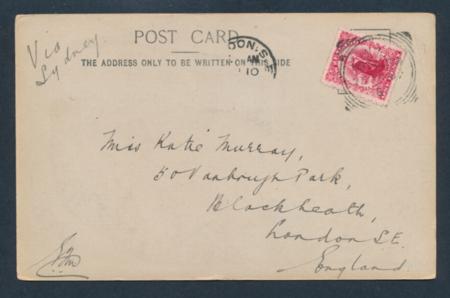 Via
Sydney.
POST CARD
THE ADDRESS ONLY TO BE WRITTEN ON THIS SIDE
DON. S.E
AM
10
Miss Katie Murray,
50 Vanbrugh Park,
Blackheath,
London S.E.
England.